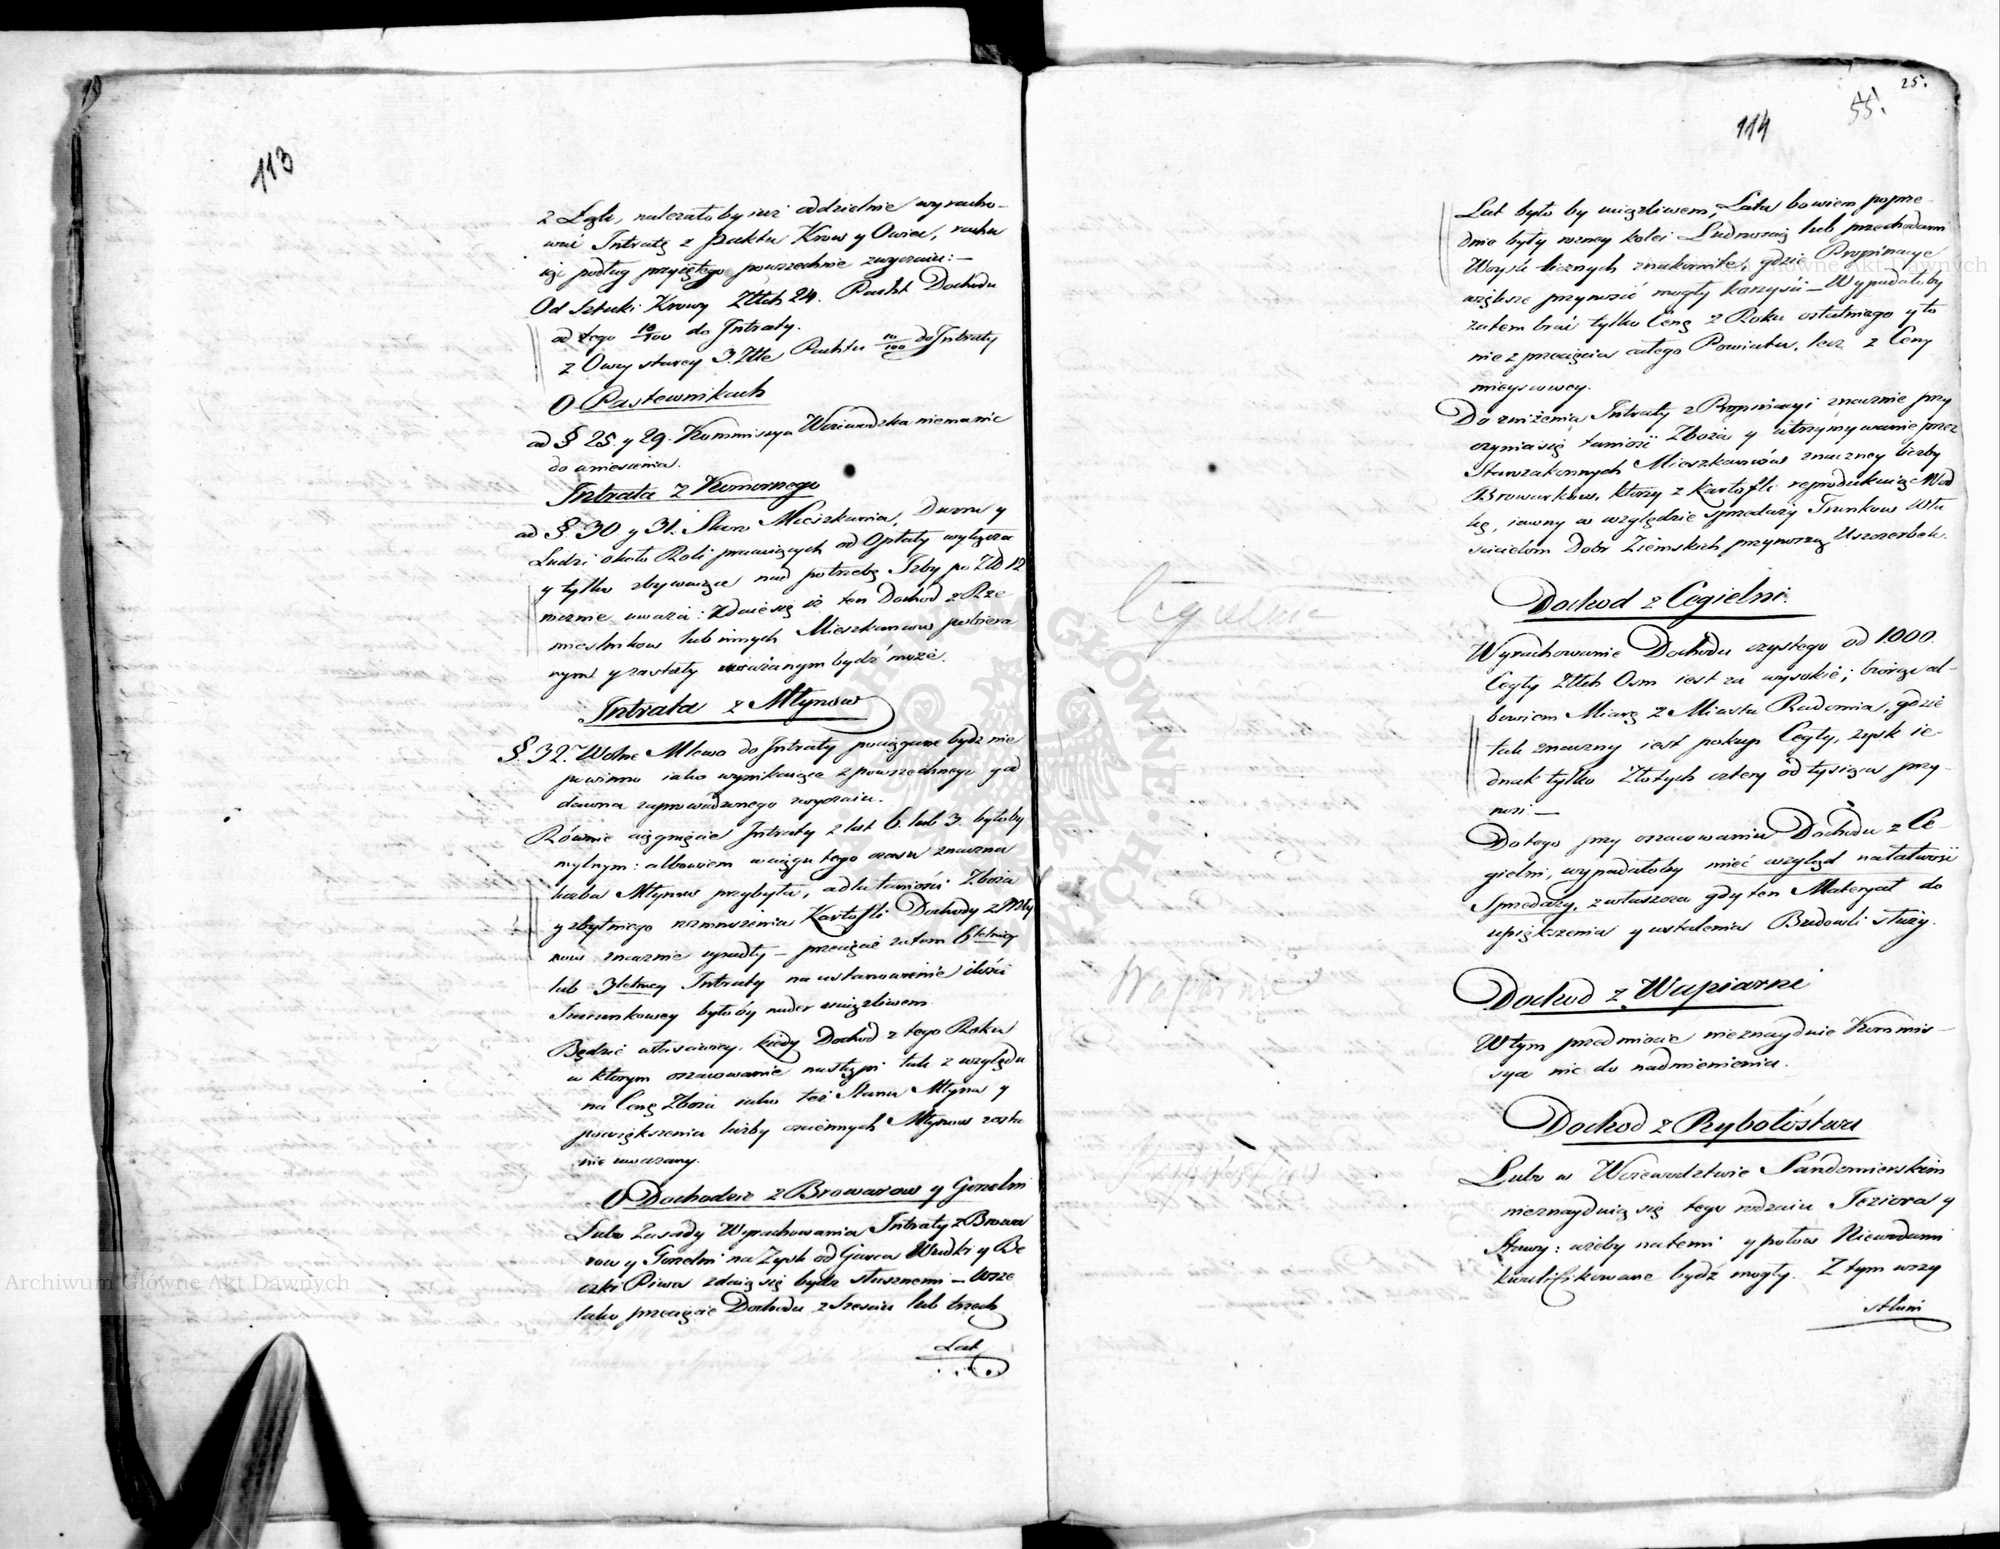 113
z Łąk, należałoby iuż oddzielnie wyracho-
wać Intratę z paktu Krow y Owiec, rachu
iąc podług przyiętego powszechnie zwyczaiu:—
Od Sztuki Krowy Złłch 24. Pacht Dochodu
od tego 10/100 do Intraty.
z Owcy starey 3. Złłe Pachtu 10/100 do Intraty
O Pastewnikach
ad § 25. y 29. Kommissya Woiewodzka niema nic
do wniesienia.
Intrata z Komornego
ad §. 30 y 31. Skoro Mieszkania, Dworu y
Ludzi około Roli pracuiących od Opłaty wyłącza
y tylko zbywaiące nad potrzebę Izby po Złł 12
rocznie uważa: zdaie się iż ten Dochod z Rze
mieślnikow lub innych Mieszkancow pobiera
nym y zostały uważanym bydź może.
Intrata z Młynow
§. 32. Wolne Mlewo do Intraty pociągane bydz nie
powinno iako wynikaiące z powszechnego y od
dawna zaprowadzonego zwyczaiu.
Rownie ciągnięcie Intraty z lat 6. lub 3. byłoby
mylnym: albowiem w ciągu tego czasu znaczna
liczba Młynow przybyła, a dla taniości Zboża
y zbytniego rozmnożenia Kartofli Dochody z Mły
now znacznie upadły — przecięcie zatem 6letniey
lub 3letniey Intraty na ustanowienie ilości
Szacunkowey byłoby nader uciążliwem
Będzie właściwiey, kiedy Dochod z tego Roku
w ktorym oszacowanie nastąpi tak z względu
na Cenę Zboża iako też Stanu Młyna y
powiększenia liczby ościennych Młynow zosta
nie uważany.
O Dochodzie z Browarow y Gorzelni
Lubo Zasady Wyrachowania Intraty z Browa
row y Gorzelni na Zysk od Garca Wodki y Be
czki Piwa zdaią się bydz słusznemi — wsze
lako przecięcie Dochodu z Sześciu lub trzech
Lat
25.
55.
114
Lat było by uciążliwem, Lata bowiem poprze-
dnie były rożney kolei Ludności lub przechodami
Woysk licznych znakomite, gdzie Propinacye
większe przynosić mogły korzyści — Wypadałoby
zatem brać tylko Cenę z Roku ostatniego y to
nie z przecięcia całego Powiatu, lecz z Ceny
mieyscowey.
Do zniżenia Intraty z Propinacyi znacznie przy
czynia się taniość Zboża y utrzymywanie przez
Starozakonnych Mieszkancow znaczney liczby
Browarkow, ktorzy z Kartofli reprodukuiąc Wod
kę, iawny w względzie sprzedaży Trunkow Wła
scicielom Dobr Ziemskich przynoszą Uszczerbek.
Cegielnie
Dochod z Cegielni.
Wyrachowanie Dochodu czystego od 1000.
Cegły Złłch Osm iest za wysokie; biorąc al-
bowiem Miarę z Miasta Radomia, gdzie
tak znaczny iest pokup Cegły, zysk ie
dnak tylko Złotych cztery od tysiąca przy-
nosi —
Do tego przy oszacowaniu Dochodu z Ce-
gielni, wypadałoby mieć wzgląd na łatwość
Sprzedaży, zwłaszcza gdy ten Materyał do
upiększenia y ustalenia Budowli służy.
Wapiarnie
Dochod z Wapiarni
W tym przedmiocie nieznayduie Kommis-
sya nic do nadmienienia.
Dochod z Rybołóstwa
Lubo w Woiewodztwie Sandomierskim
nieznayduią się tego rodzaiu Jeziora y
Stawy: ażeby na temi y połow Niewodami
kwalifikowane bydź mogły. Z tym wszy
stkim
Archiwum Główne Akt Dawnych
Archiwum Główne Akt Dawnych